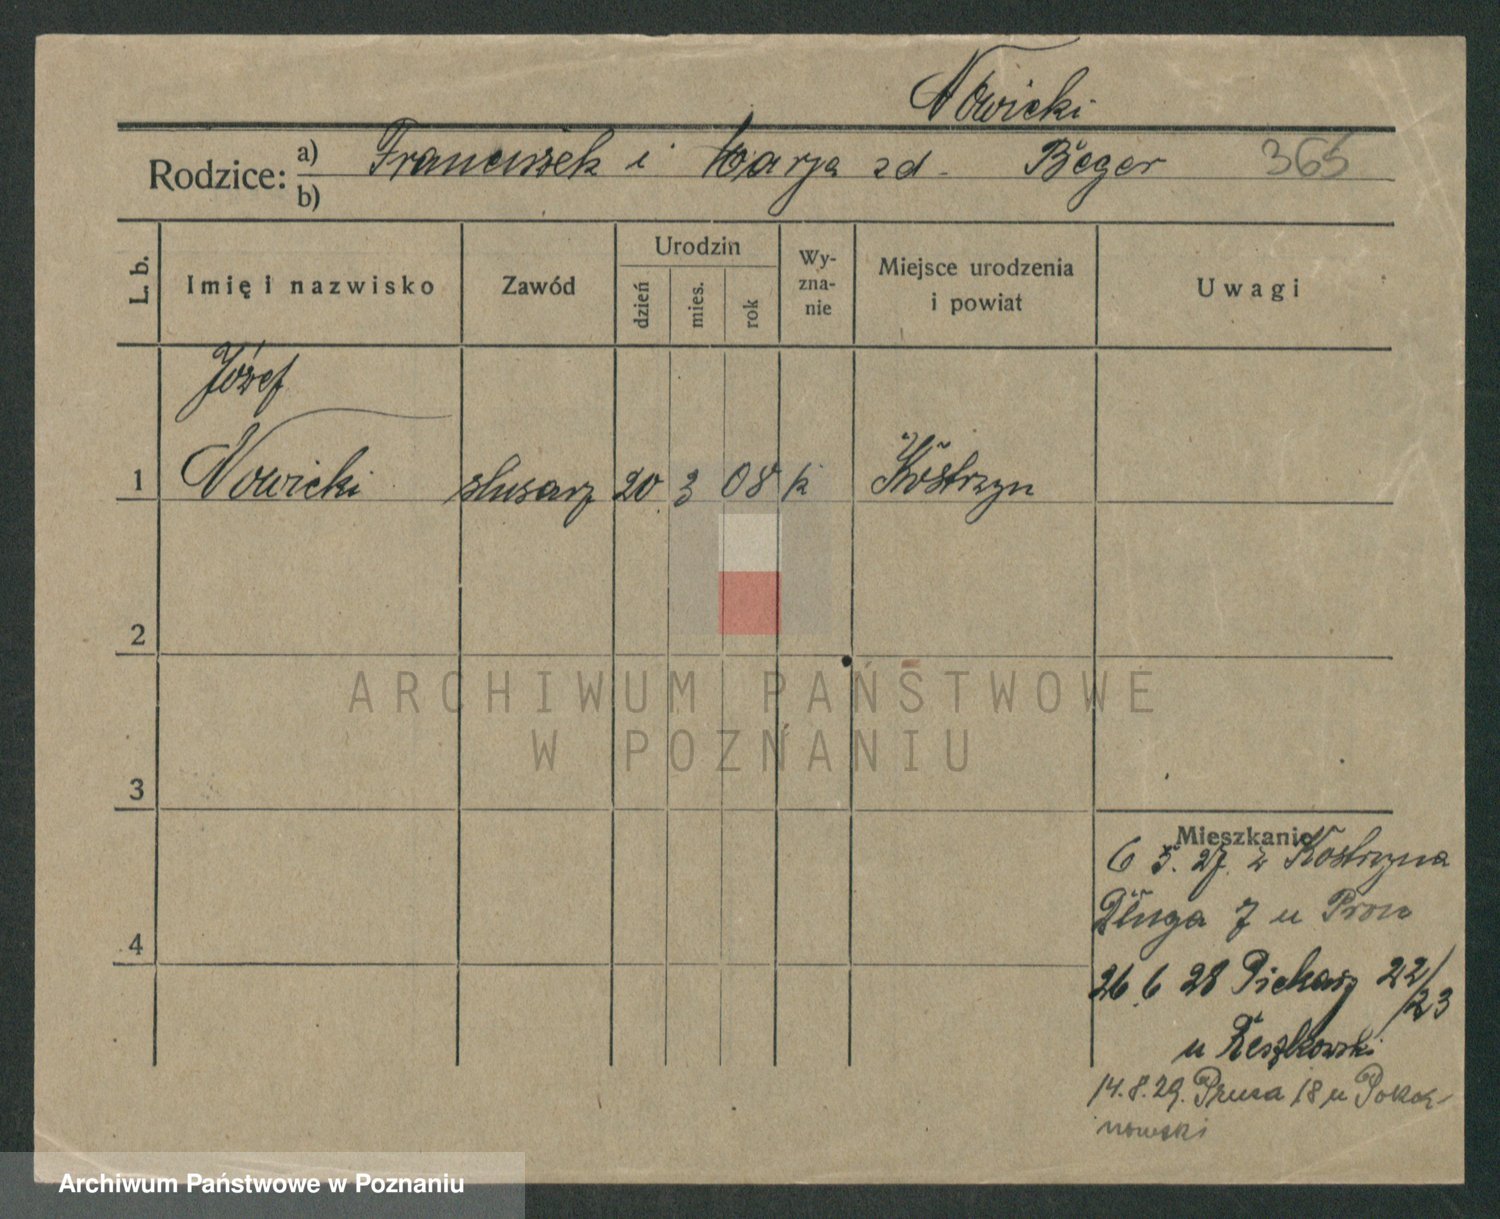 Nowicki
Rodzice: a) Franciszek i Marja zd. Beger 365
b)
L. b. Imię i nazwisko Zawód Urodzin dzień mies. rok Wy-zna-nie Miejsce urodzenia i powiat Uwagi
Józef
1 Nowicki slusarz 20 3 08 k Kostrzyn
2
ARCHIWUM PAŃSTWOWE
W POZNANIU
3
Mieszkanie
6 5. 27. z Kostrzyna
Długa 7 u
4
26. 6 28 Piekary 22/23
u Reszkowski
14.8.29. Prusa 18 u Pokorz-
nowski
Archiwum Państwowe w Poznaniu